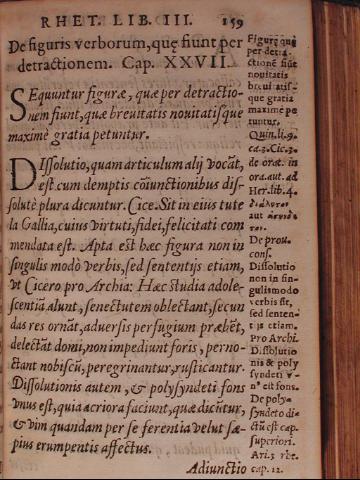 RHET. LIB. III. 159
De figuris verborum, quę fiunt per
detractionem. Cap. XXVII.
SEquuntur figuræ, quæ per detractio-
nem fiunt, quæ breuitatis nouitatisque
maximè gratia petuntur.
DIssolutio, quam articulum alij vocãt,
est cum demptis cõiunctionibus dis-
solutè plura dicuntur. Cice. Sit in eius tute
la Gallia, cuius virtuti, fidei, felicitati com
mendata est. Apta est hæc figura non in
singulis modò verbis, sed sententijs etiam,
vt Cicero pro Archia: Hæc studia adole-
scentiã alunt, senectutem oblectant, secun
das res ornãt, aduersis perfugium præbẽt,
delectãt domi, non impediunt foris, perno-
ctant nobiscũ, peregrinantur, rusticantur.
Dissolutionis autem, & polysyndeti fons
vnus est, quia acriora faciunt, quæ dicũtur,
& vim quandam per se ferentia velut sæ-
pius erumpentis affectus.
Adiunctio
Figurę quę
per detra-
ctione fiũt
nouitatis
breuitatis-
que gratia
maximè pe
tuntur.
Quin. li. 9.
ca. 3. Cic. 3.
de orat. in
ora. aut ad
Her. lib. 4.
aut
De prou.
cons.
Dissolutio
non in sin-
gulis modo
verbis fit,
sed senten-
tijs etiam.
Pro Archi.
Dissolutio
nis & poly
syndeti v-
nº est fons.
De poly-
syndeto di-
ctũ est cap.
superiori.
Ari. 3 rhe.
cap. 12.